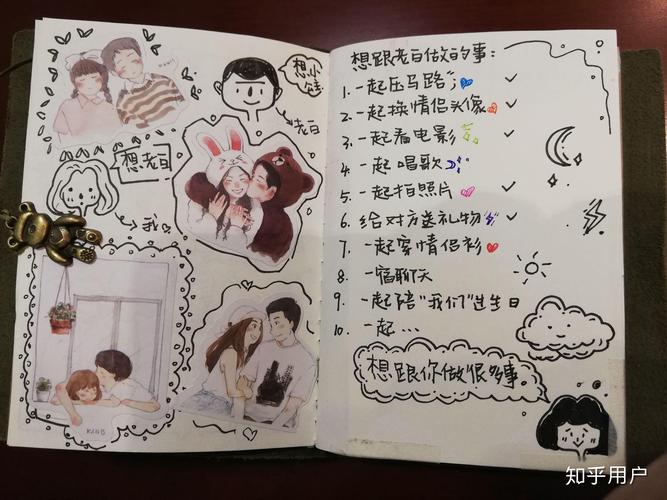 想小娃
老白
想老白
我
KUNB
想跟老白做的事:
1. 一起压马路"; ✓
2. 一起换情侣头像 ✓
3. 一起看电影 ✓
4. 一起唱歌
5. 一起拍照片 ✓
6. 给对方送礼物 ✓
7. 一起穿情侣衫
8. 一宿聊天
9. 一起陪"我们"过生日
10. 一起...
想跟你做很多事
知乎用户